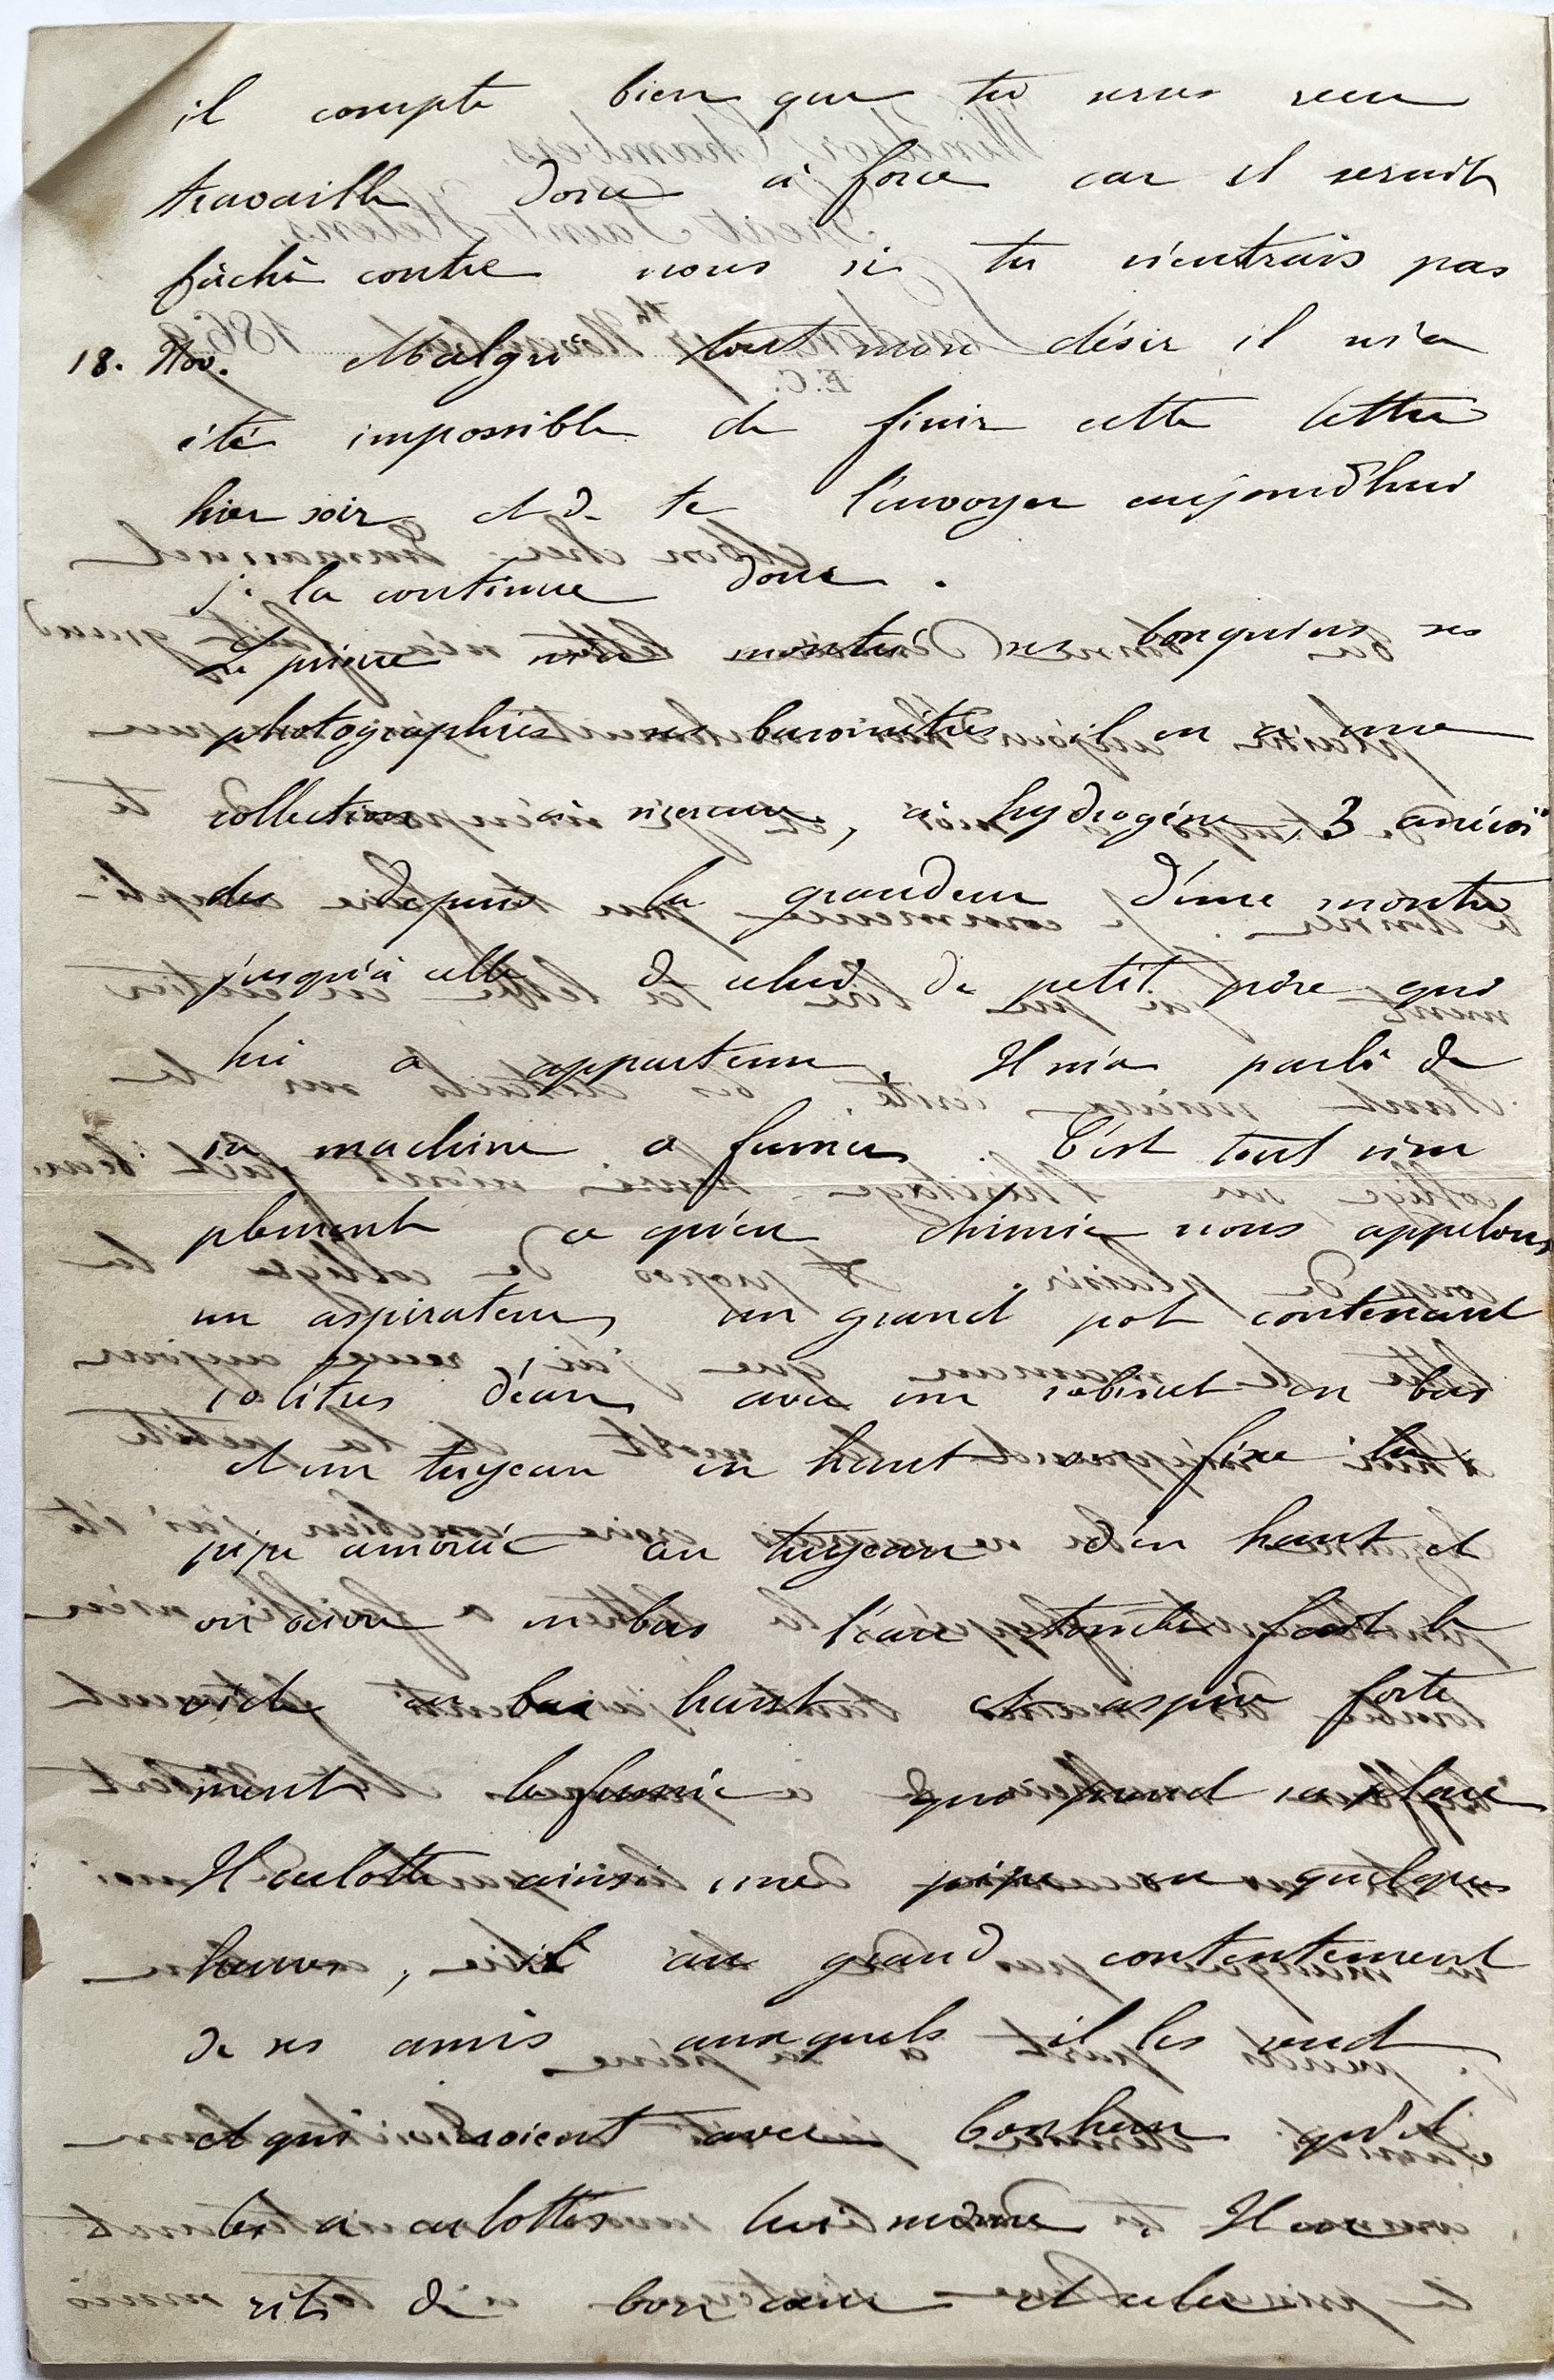 il compte bien que tu seras recu
travaille donc à force car il serait
fâché contre nous si tu n'entrais pas
18. Nov. Malgré tout mon désir il m'a
été impossible de finir cette lettre
hier soir et de te l'envoyer aujourd'hui
je la continue donc.
Le prince m'a montré ses bouquins ses
photographies ses baromètres il en a une
collection à niveau, à hydrogène, 3 anéroï
des depuis la grandeur d'une montre
jusqu'à celle de celui de petit père qui
lui a appartenu. Il m'a parlé de
sa machine a fumer. C'est tout sim
plement ce qu'en chimie nous appelons
un aspirateur, un grand pot contenant
10 litres d'eau avec un robinet en bas
et un tuyau en haut on fixe la
pipe amorcée au tuyau d'en haut et
on ouvre en bas l'eau tombe fait le
vide en haut et aspire forte
ment la fumée qui prend sa place
Il culotte ainsi une pipe en quelques
heures, au grand contentement
de ses amis auxquels il les vend
et qui croient avec bonheur qu'il
les a culottées lui même. Il
rit de bon cœur et cela